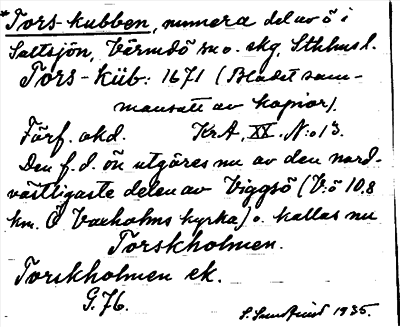 *Tors-kubben, numera del av ö i
Saltsjön, Värmdö sn o. skg, Sthlms l.
Tors-Küb: 1671 (Bladet sam-
mansatt av kopior).
Förf. okd. KrA, XX. N:o 13.
Den f.d. ön utgöres nu av den nord-
västligaste delen av Viggsö (V:ö 10.8
km. Ö Vaxholms kyrka) o. kallas nu
Torskholmen.
Torskholmen ek.
G.76.
1935.